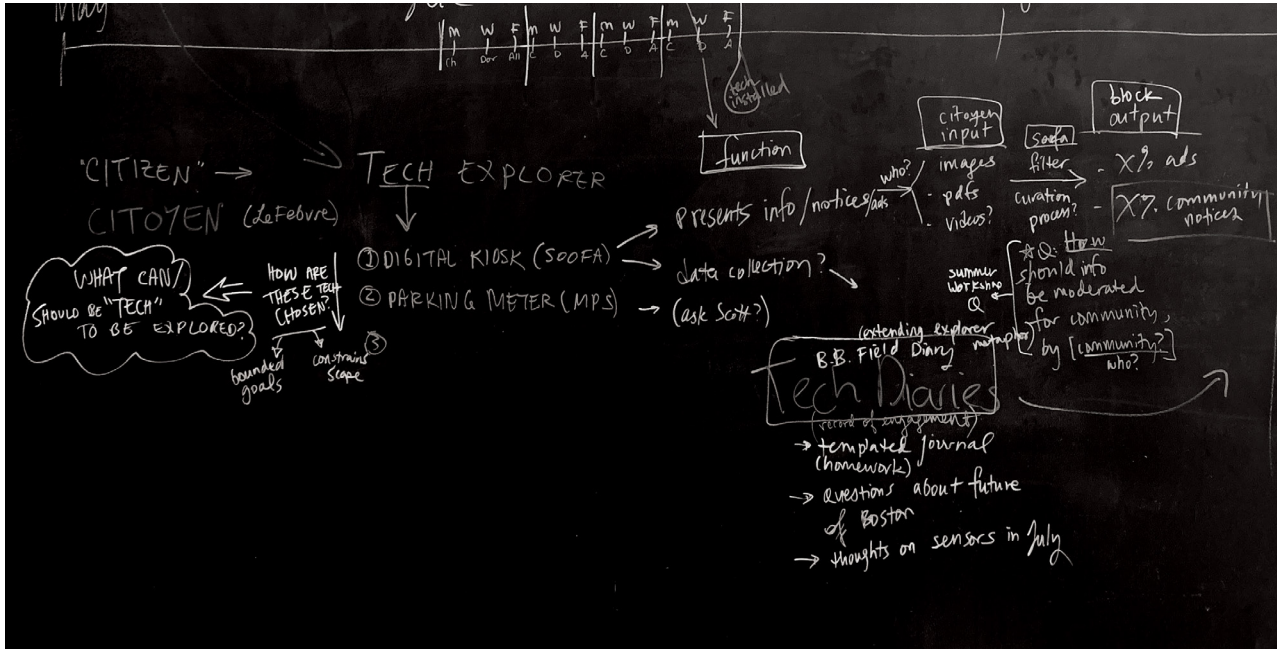 May
m W F m W F m W F m W F
Ch Dor All C D A C D A C D A
tech
installed
function
citoyen
input
block
output
soofa
"CITIZEN" →
CITOYEN (LeFebvre)
TECH EXPLORER
① DIGITAL KIOSK (SOOFA)
② PARKING METER (MPS)
③
WHAT CAN/
SHOULD BE "TECH"
TO BE EXPLORED?
HOW ARE
THESE TECH
CHOSEN?
bounded
goals
constrains
scope
presents info/notices/ads
data collection?
(ask Scott?)
who?
images
- pdfs
- videos?
filter
curation
process?
- X% ads
- X% community
notices
summer
workshop
Q
☆ Q: How
should info
be moderated
for community,
by [community?]
who?
(extending explorer
metaphor)
B.B. Field Diary
Tech Diaries
(record of engagement)
→ templated journal
(homework)
→ questions about future
of Boston
→ thoughts on sensors in July